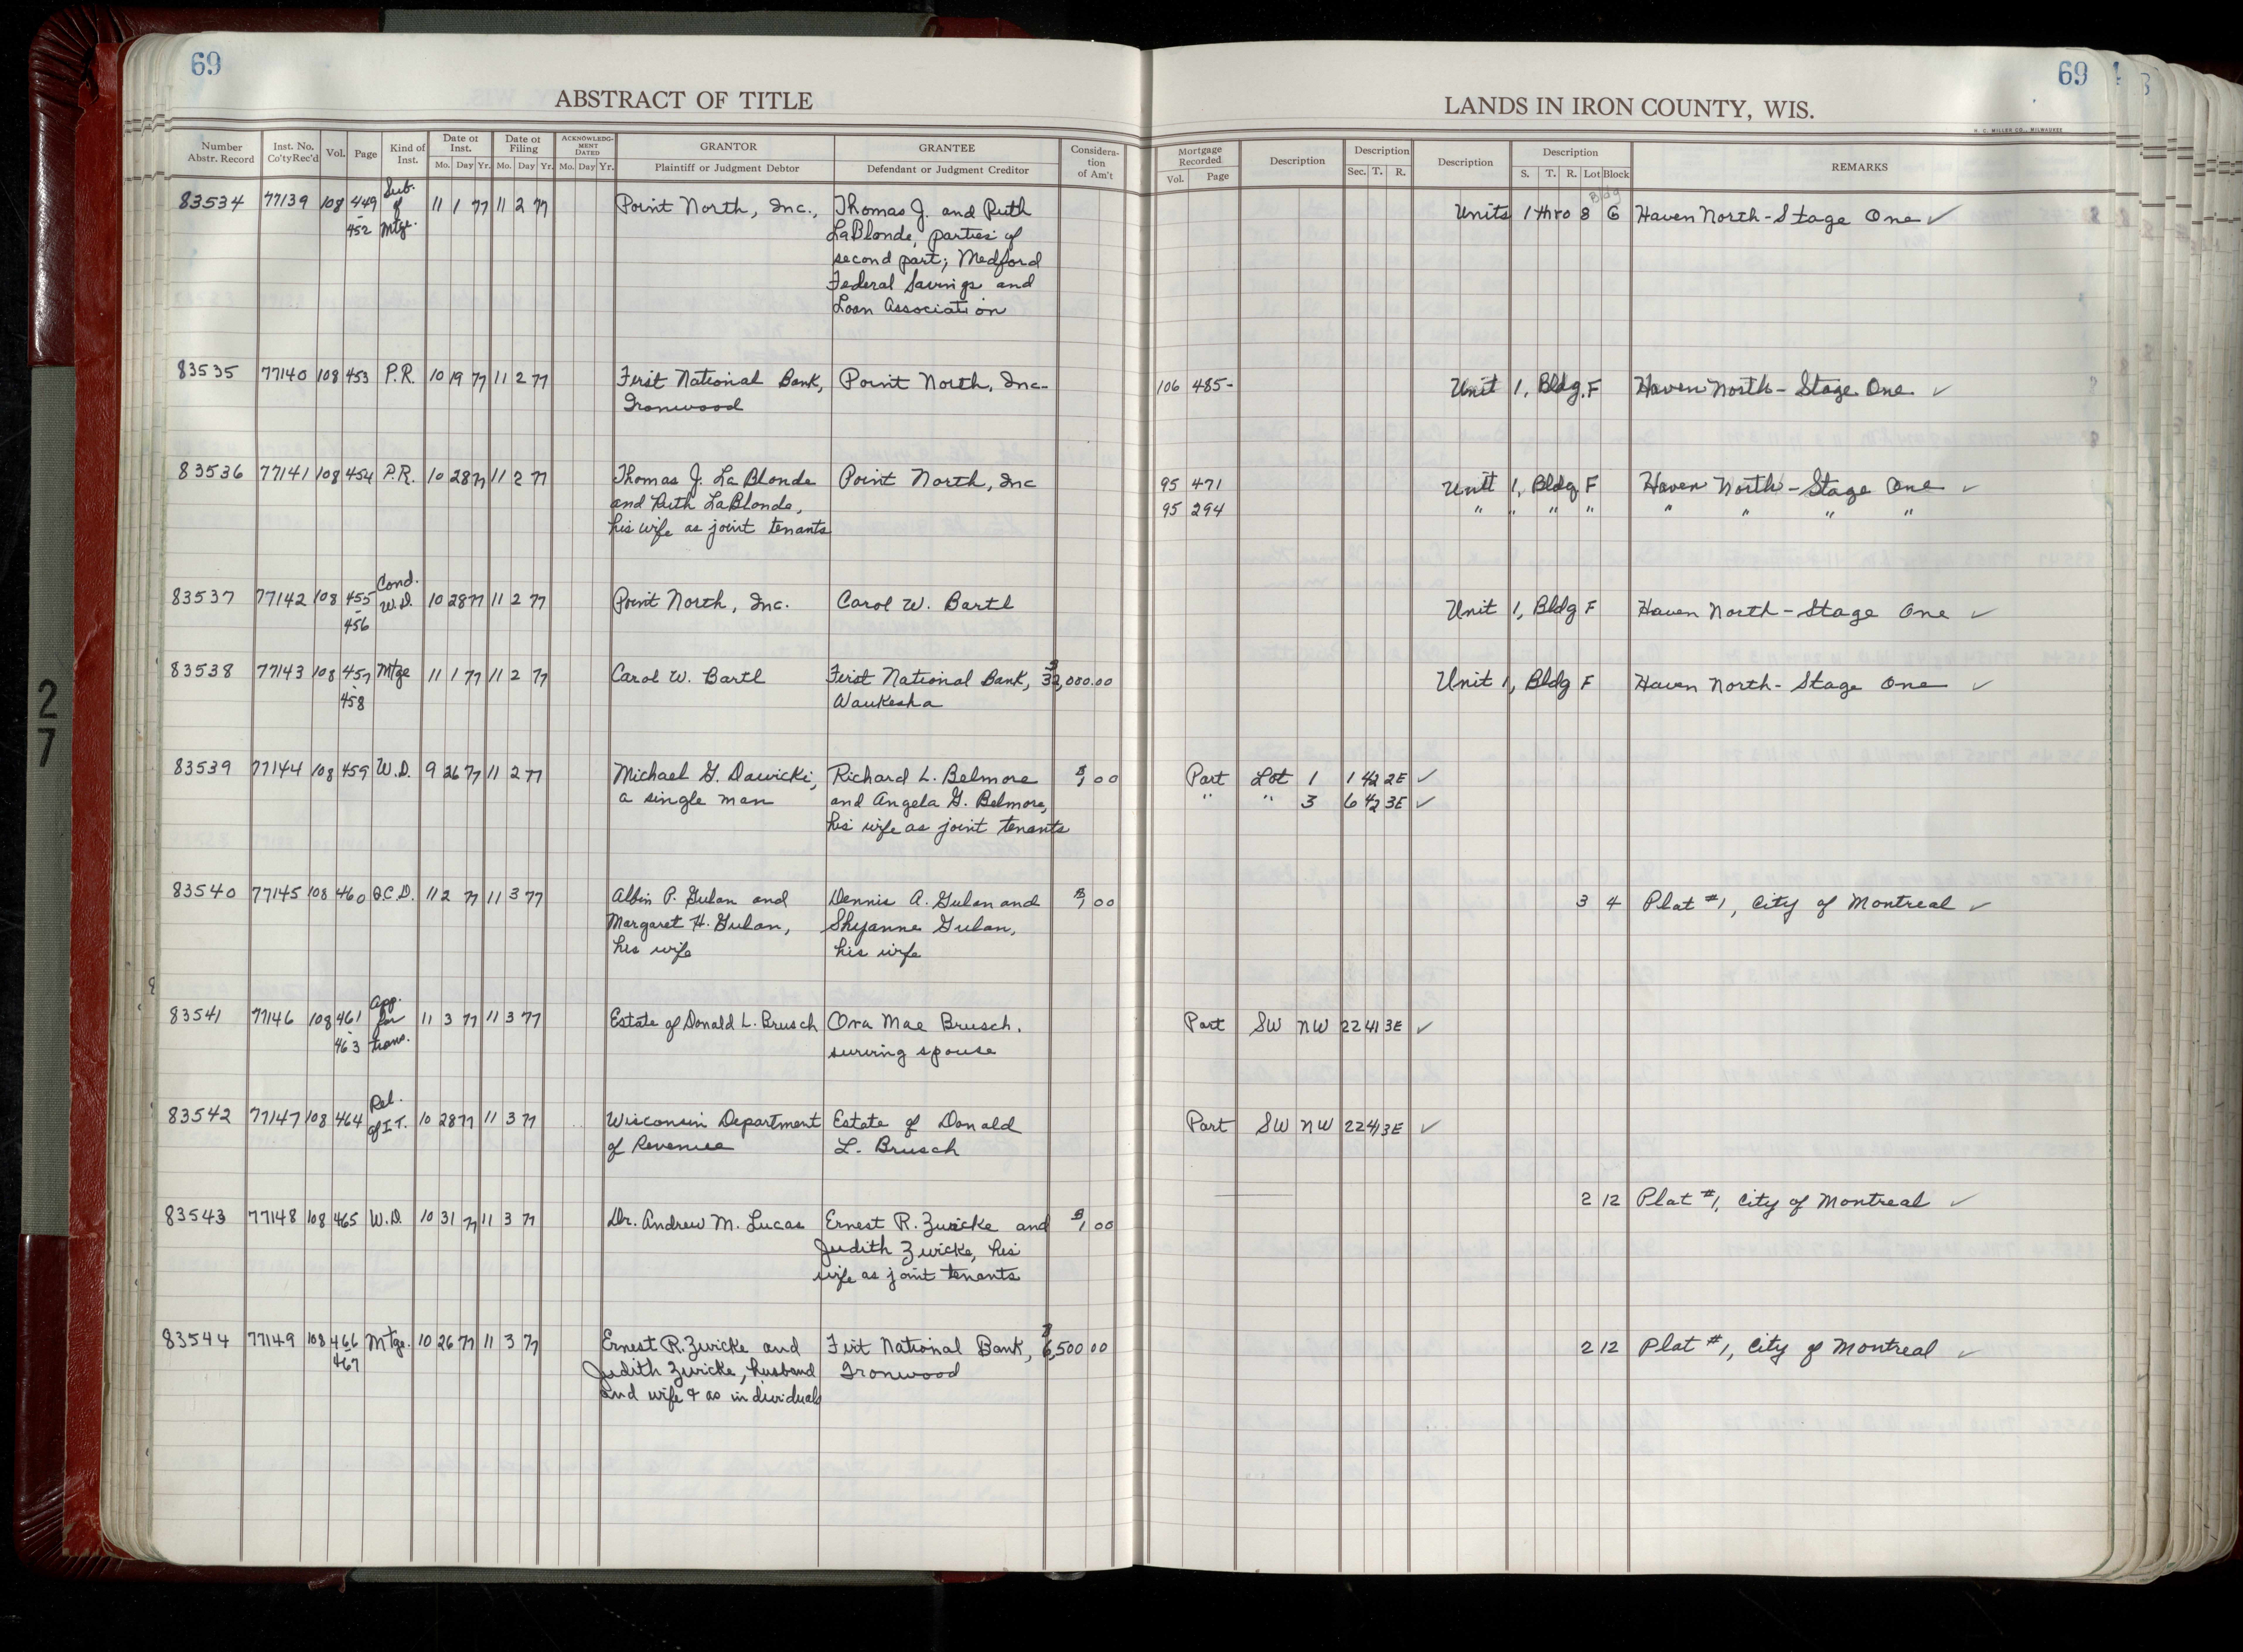 69
69
ABSTRACT OF TITLE
LANDS IN IRON COUNTY, WIS.
H. C. MILLER CO., MILWAUKEE
Number Abstr. Record
Inst. No. Co'ty Rec'd
Vol.
Page
Kind of Inst.
Date of Inst.
Mo. Day Yr.
Date of Filing
Mo. Day Yr.
ACKNOWLEDGMENT DATED
Mo. Day Yr.
GRANTOR
Plaintiff or Judgment Debtor
GRANTEE
Defendant or Judgment Creditor
Consideration of Am't
Mortgage Recorded
Vol. Page
Description
Description
Sec. T. R.
Description
Description
S. T. R. Lot Block
REMARKS
83534 77139 108 449-452 Sub. of Mtge. 11 1 77 11 2 77 Point North, Inc., Thomas J. and Ruth Units 1 thro 8 Bldg G Haven North-Stage One ✓
LaBlonde, parties of
second part; Medford
Federal Savings and
Loan Association
83535 77140 108 453 P.R. 10 19 77 11 2 77 First National Bank, Point North, Inc. 106 485- Unit 1, Bldg. F Haven North- Stage One ✓
Ironwood
83536 77141 108 454 P.R. 10 28 77 11 2 77 Thomas J. LaBlonde Point North, Inc 95 471 Unit 1, Bldg F Haven North-Stage One ✓
and Ruth LaBlonde, 95 294 " " " " " " " "
his wife as joint tenants
83537 77142 108 455-456 Cond. W.D. 10 28 77 11 2 77 Point North, Inc. Carol W. Bartl Unit 1, Bldg F Haven North-Stage One ✓
83538 77143 108 457-458 Mtge 11 1 77 11 2 77 Carol W. Bartl First National Bank, $32,000.00 Unit 1, Bldg F Haven North- Stage One ✓
Waukesha
83539 77144 108 459 W.D. 9 26 77 11 2 77 Michael G. Dawicki, Richard L. Belmore $1,00 Part Lot 1 1 42 2E ✓
a single man and Angela G. Belmore, " " 3 6 42 3E ✓
his wife as joint tenants
83540 77145 108 460 Q.C.D. 11 2 77 11 3 77 Albin P. Gulan and Dennis A. Gulan and $1,00 3 4 Plat #1, City of Montreal ✓
Margaret H. Gulan, Shyanne Gulan,
his wife his wife
83541 77146 108 461-463 App. for trans. 11 3 77 11 3 77 Estate of Donald L. Brusch Ora Mae Brusch, Part SW NW 22 41 3E ✓
surving spouse
83542 77147 108 464 Rel. of I.T. 10 28 77 11 3 77 Wisconsin Department Estate of Donald Part SW NW 22 41 3E ✓
of Revenue L. Brusch
83543 77148 108 465 W.D. 10 31 77 11 3 77 Dr. Andrew M. Lucas Ernest R. Zwicke and $1,00 2 12 Plat #1, City of Montreal ✓
Judith Zwicke, his
wife as joint tenants
83544 77149 108 466-467 Mtge. 10 26 77 11 3 77 Ernest R. Zwicke and Fist National Bank, $6,500 00 2 12 Plat #1, City of Montreal ✓
Judith Zwicke, husband Ironwood
and wife & as individuals
27